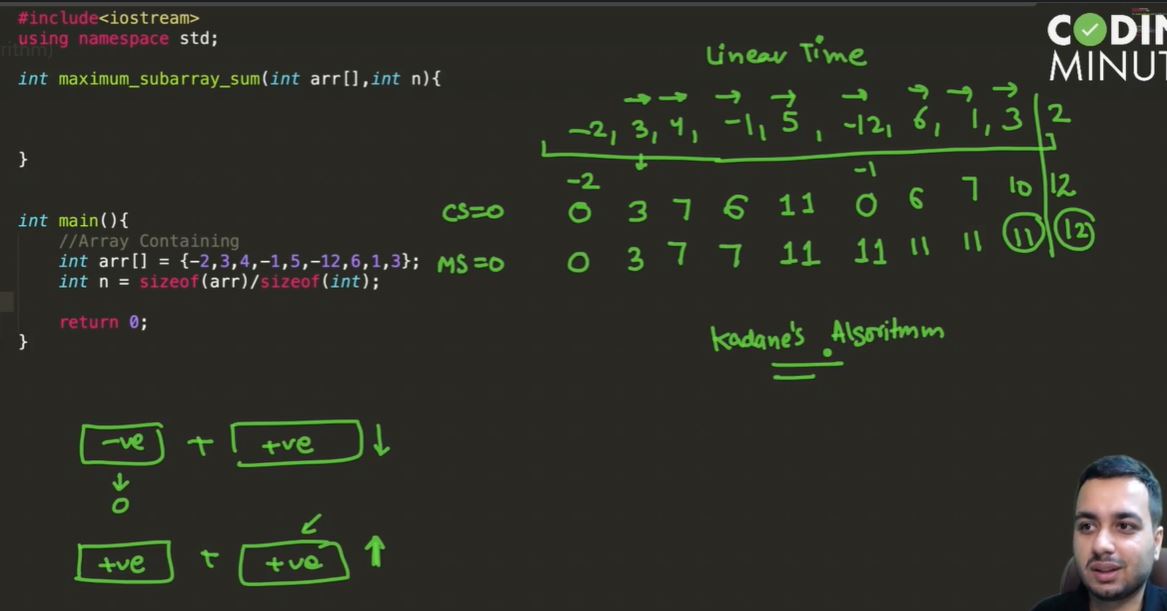 #include<iostream>
using namespace std;
int maximum_subarray_sum(int arr[],int n){
}
int main(){
//Array Containing
int arr[] = {-2,3,4,-1,5,-12,6,1,3};
int n = sizeof(arr)/sizeof(int);
return 0;
}
CODIN
MINUT
Linear Time
-2, 3, 4, -1, 5, -12, 6, 1, 3 2
-2 -1
CS=0 0 3 7 6 11 0 6 7 10 12
MS=0 0 3 7 7 11 11 11 11 11 12
Kadane's Algorithm
-ve + +ve
0
+ve + +ve